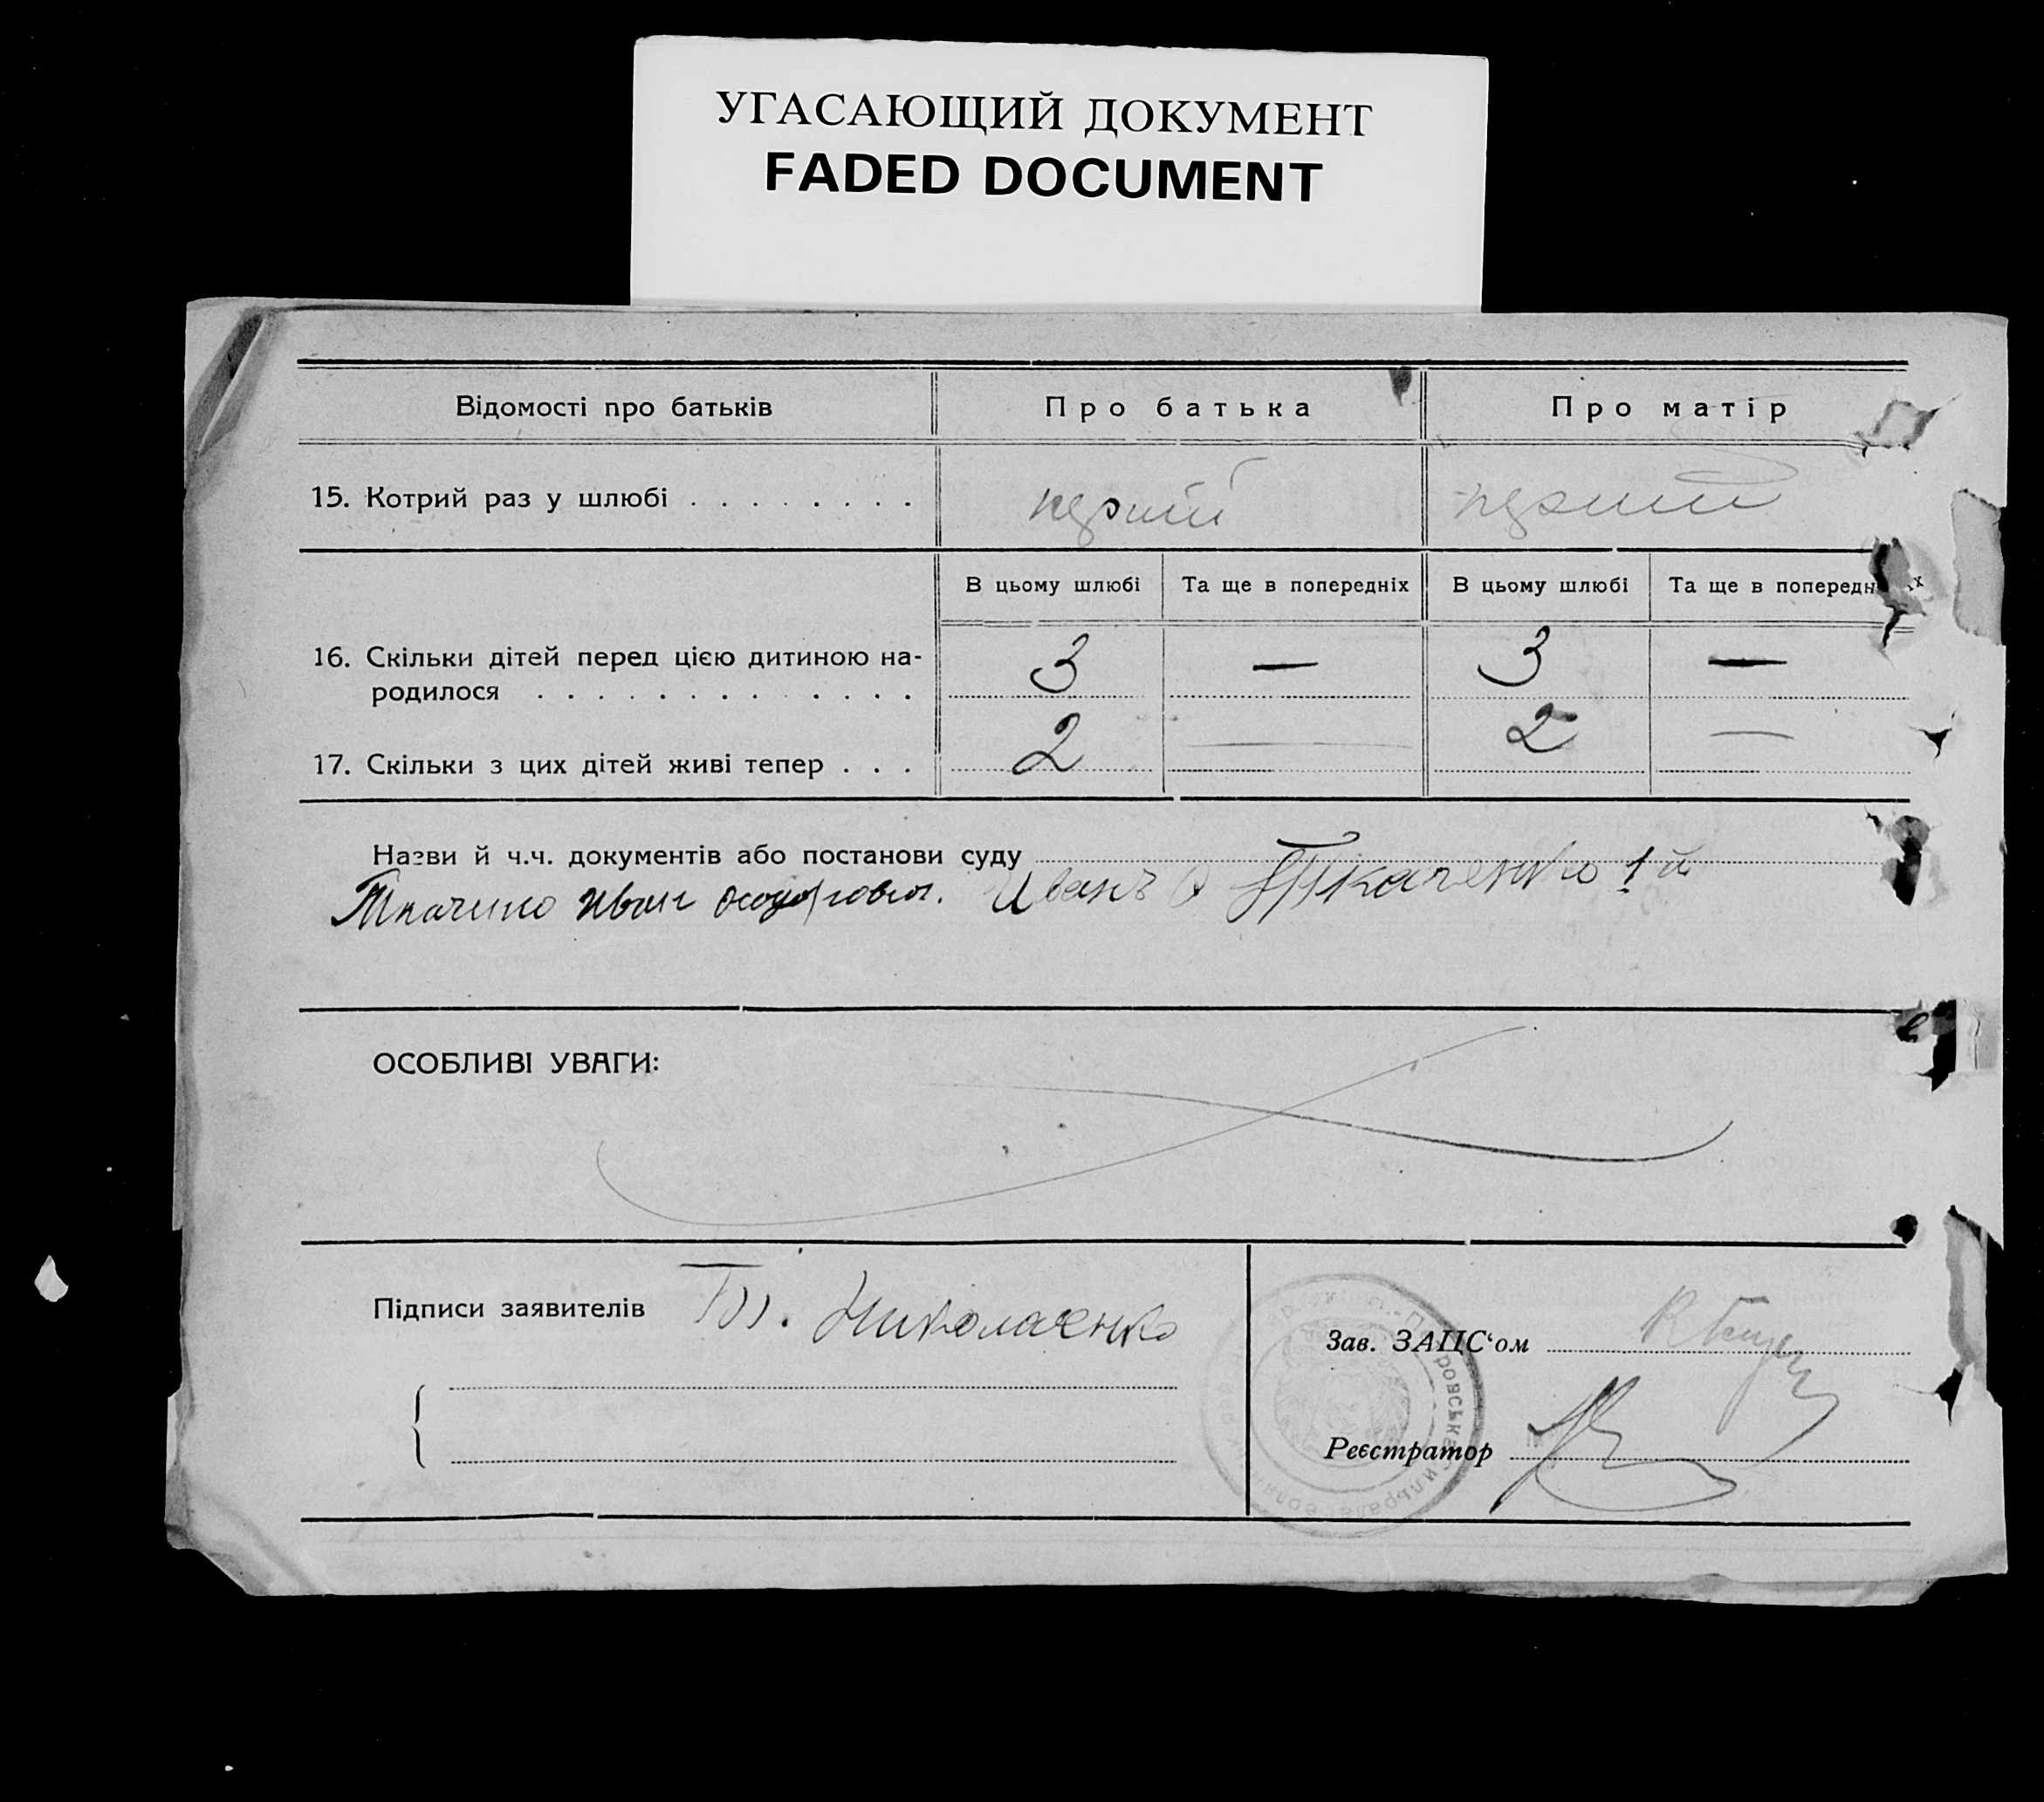 УГАСАЮЩИЙ ДОКУМЕНТ
FADED DOCUMENT
Відомості про батьків Про батька Про матір
15. Котрий раз у шлюбі . . . . . . . . перший перший
В цьому шлюбі Та ще в попередніх В цьому шлюбі Та ще в попередніх
16. Скільки дітей перед цією дитиною на- 3 — 3 —
родилося . . . . . . . . . . . . .
17. Скільки з цих дітей живі тепер . . . 2 — 2 —
Назви й ч.ч. документів або постанови суду
Иванъ Ткаченко 1й
ОСОБЛИВІ УВАГИ:
Підписи заявителів Николаенко
Зав. ЗАЦС‘ом
Реєстратор